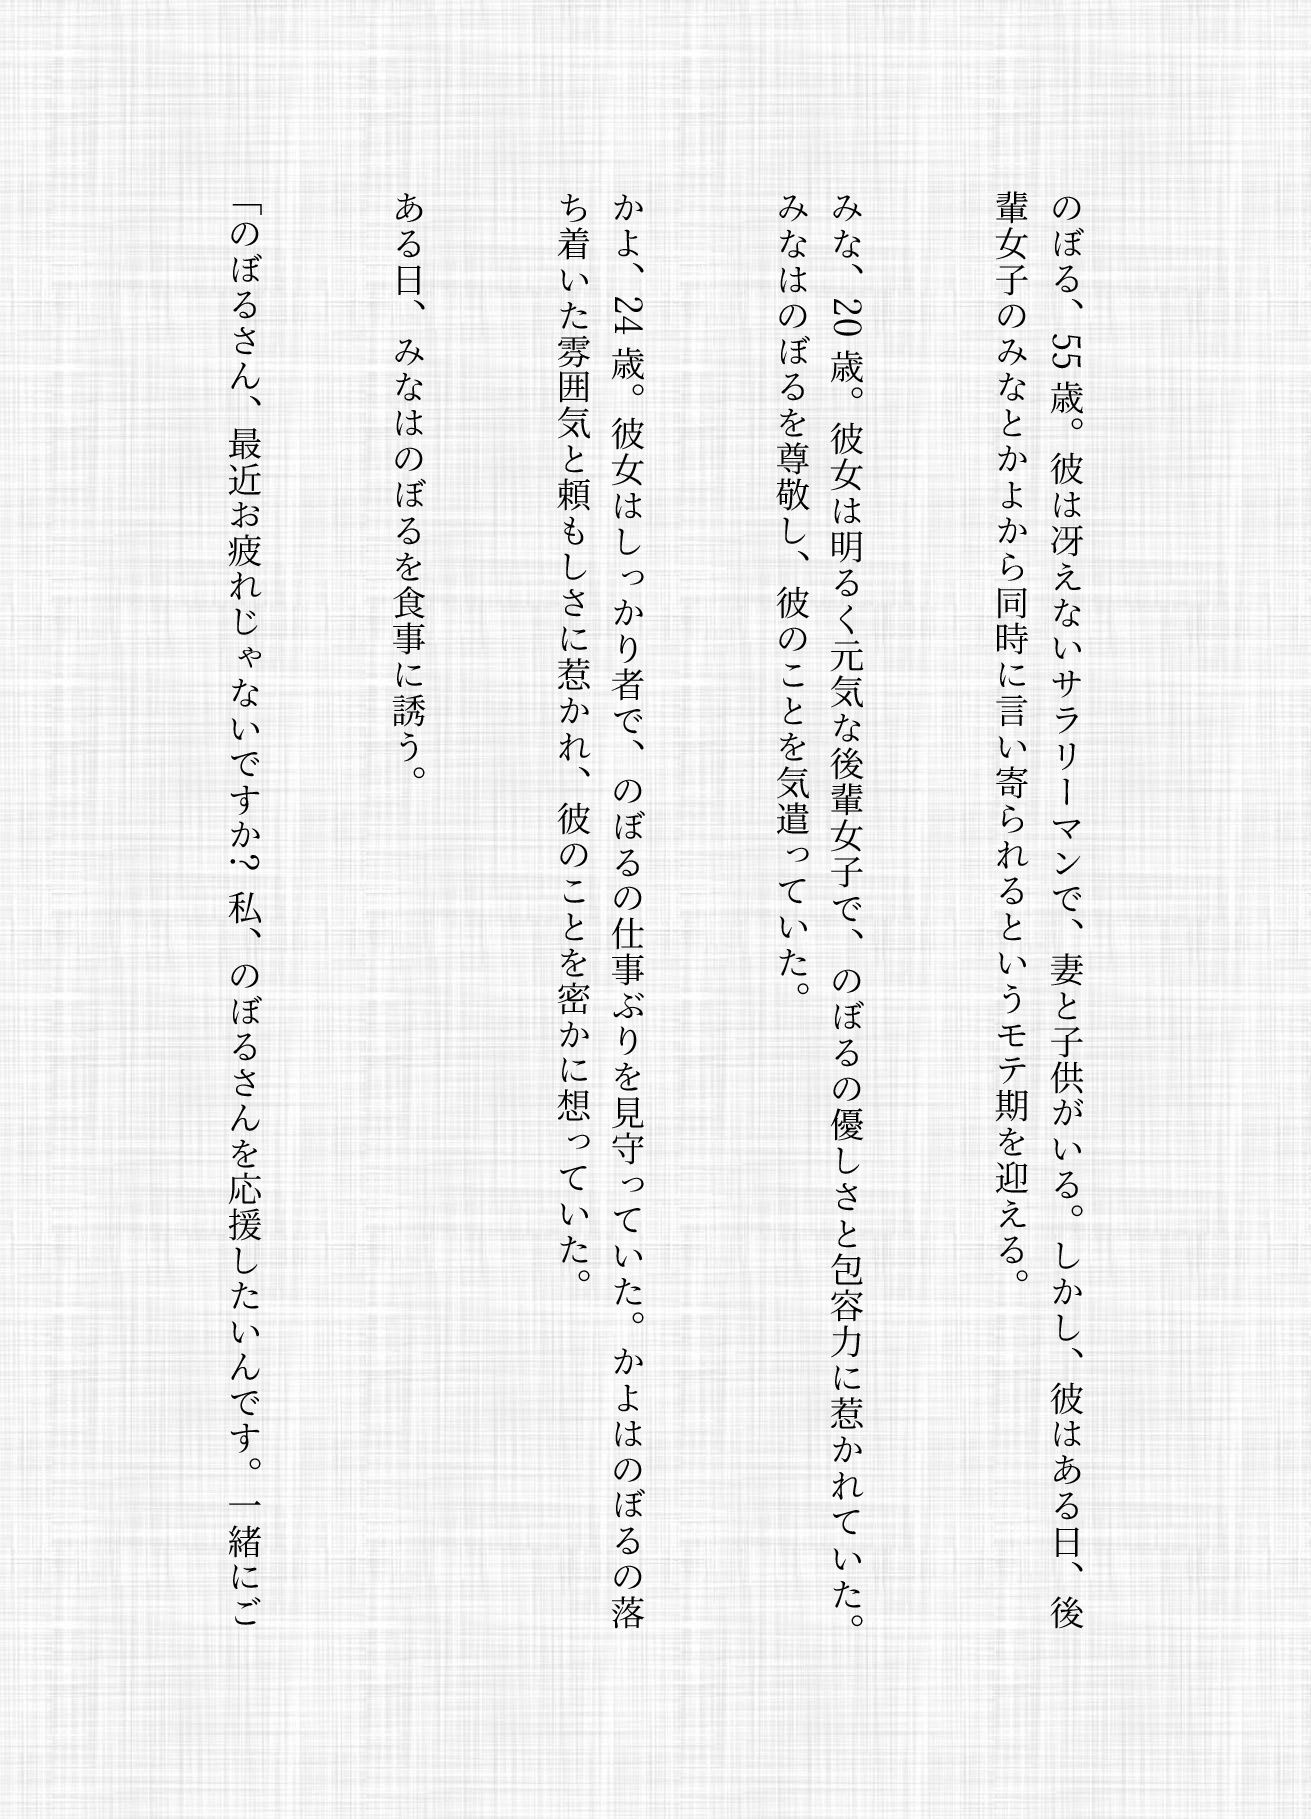 のぼる、55 歳。彼は冴えないサラリーマンで、妻と子供がいる。しかし、彼はある日、後
輩女子のみなとかよから同時に言い寄られるというモテ期を迎える。
みな、20 歳。彼女は明るく元気な後輩女子で、のぼるの優しさと包容力に惹かれていた。
みなはのぼるを尊敬し、彼のことを気遣っていた。
かよ、24 歳。彼女はしっかり者で、のぼるの仕事ぶりを見守っていた。かよはのぼるの落
ち着いた雰囲気と頼もしさに惹かれ、彼のことを密かに想っていた。
ある日、みなはのぼるを食事に誘う。
「のぼるさん、最近お疲れじゃないですか? 私、のぼるさんを応援したいんです。一緒にご